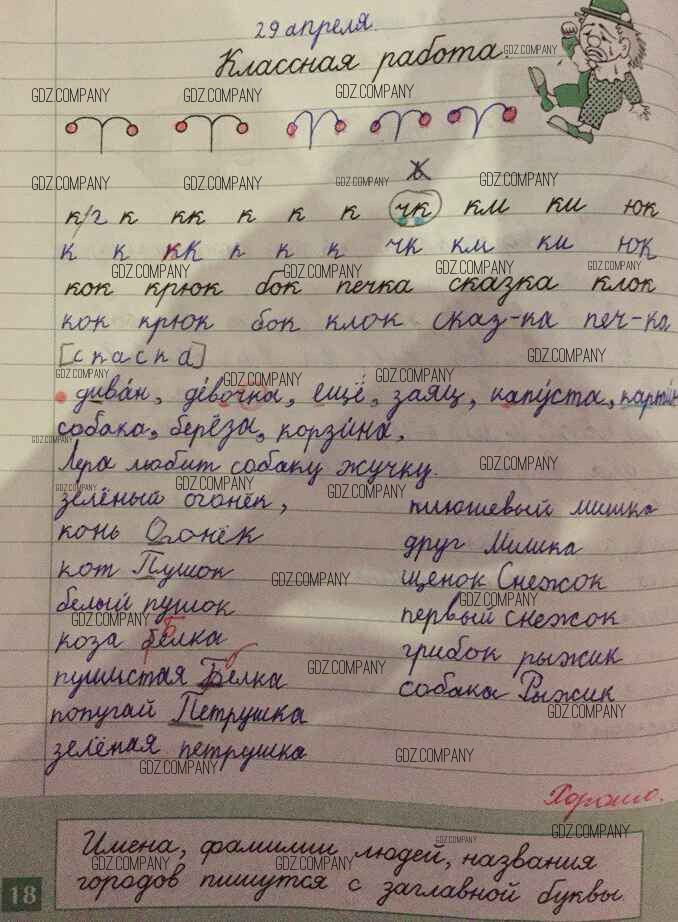 29 апреля.
Классная работа.
к/г к кк к к к чк км ки юк
к к кк к к к чк км ки юк
кок крюк бок печка сказка клок
кок крюк бок клок сказ-ка печ-ка
[спаспа]
диван, девочка, ещё, заяц, капуста, картин
собака, берёза, корзина.
Лера любит собаку жучку.
зелёный огонёк,
конь Огонёк
кот Пушок
белый пушок
коза белка
пушистая Белка
попугай Петрушка
зелёная петрушка
плюшевый мишка
друг Мишка
щенок Снежок
первый снежок
грибок рыжик
собака Рыжик
Хорошо.
Имена, фамилии людей, названия
городов пишутся с заглавной буквы.
18
GDZ.COMPANY